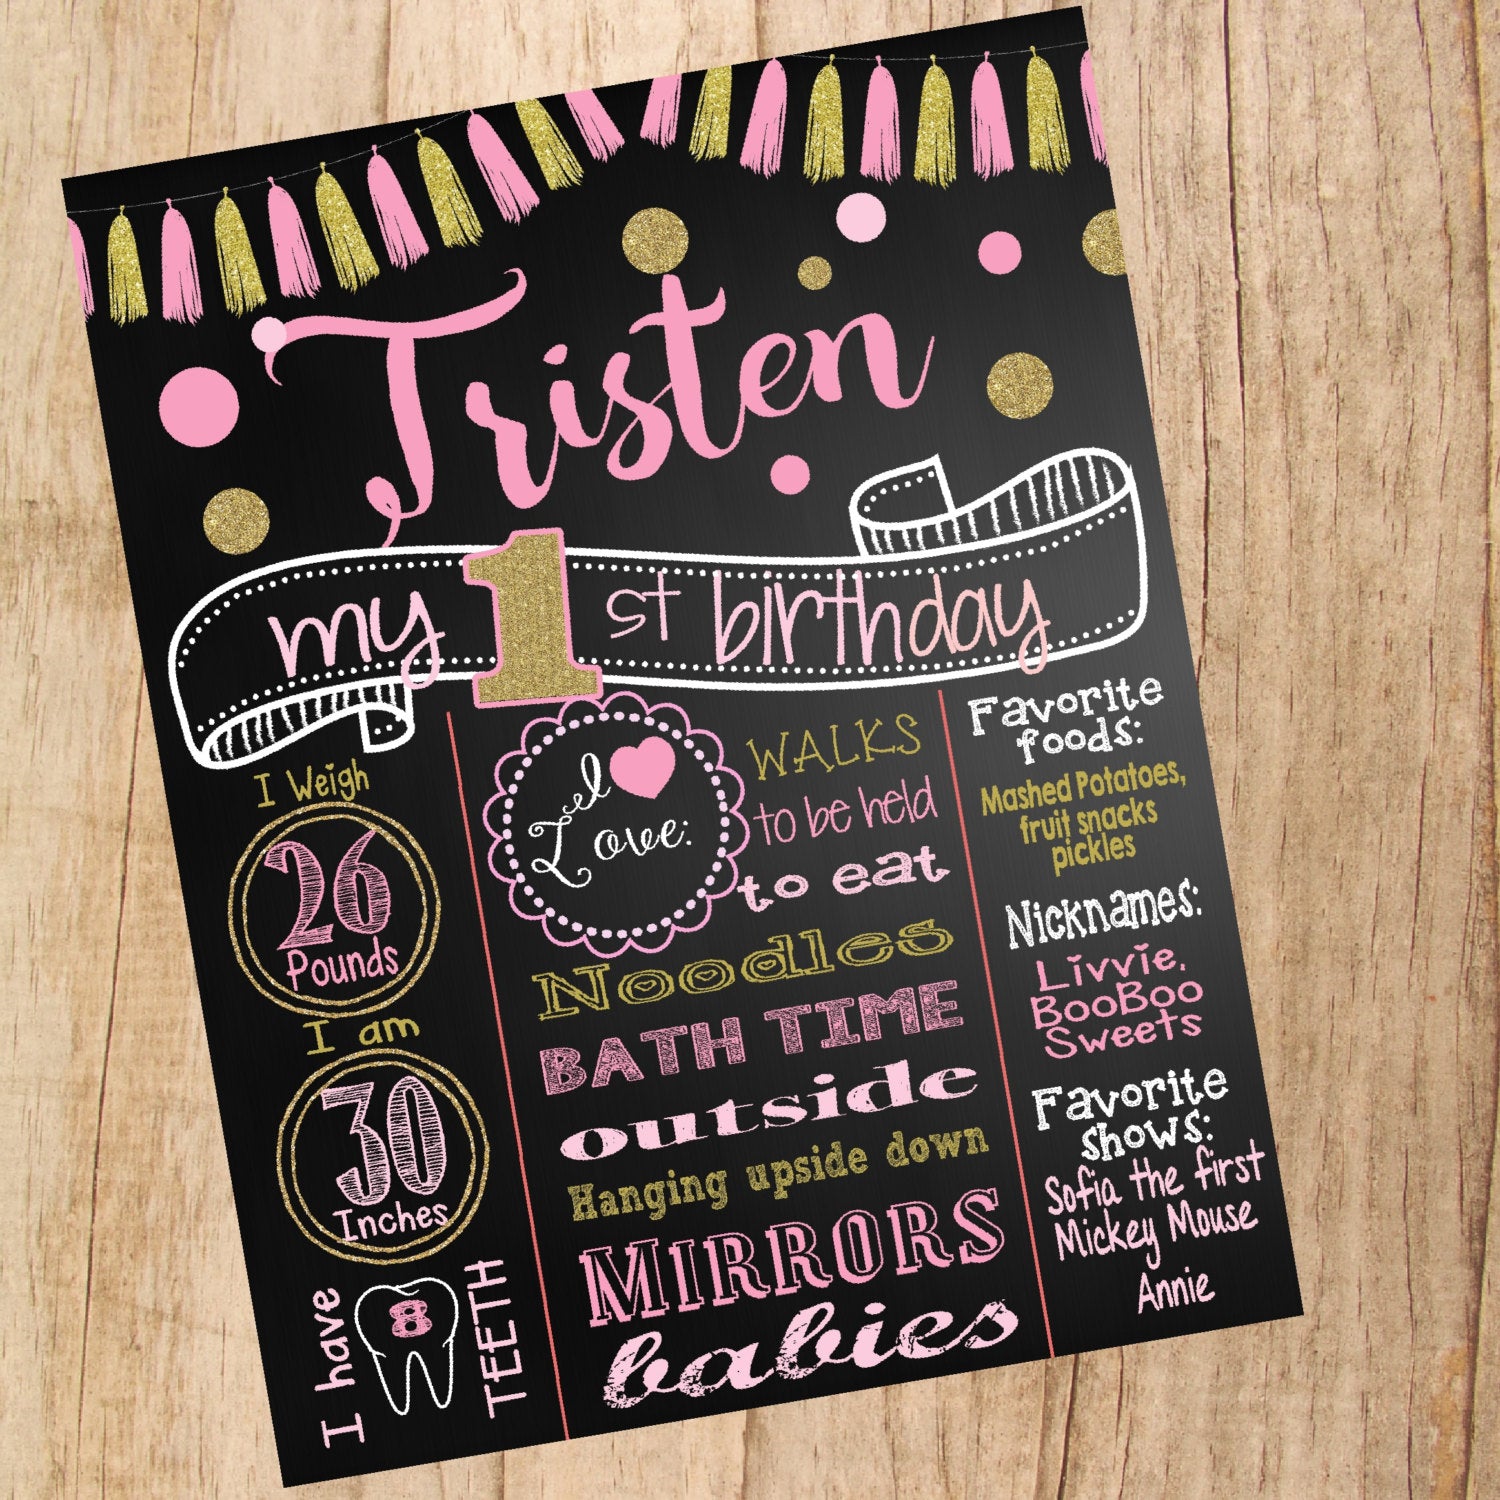 Tristen
my 1st birthday
I Weigh
26
Pounds
I am
30
Inches
I have
8
TEETH
I
Love:
WALKS
to be held
to eat
Noodles
BATH TIME
outside
Hanging upside down
MIRRORS
babies
Favorite
foods:
Mashed Potatoes,
fruit snacks
pickles
Nicknames:
Livvie,
BooBoo
Sweets
Favorite
shows:
Sofia the first
Mickey Mouse
Annie